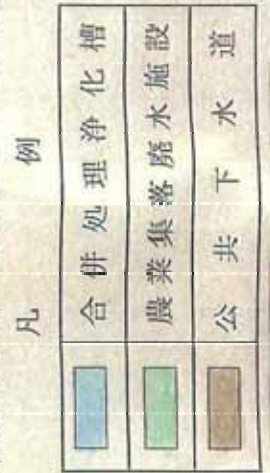 凡例
合併処理浄化槽
農業集落廃水施設
公共下水道